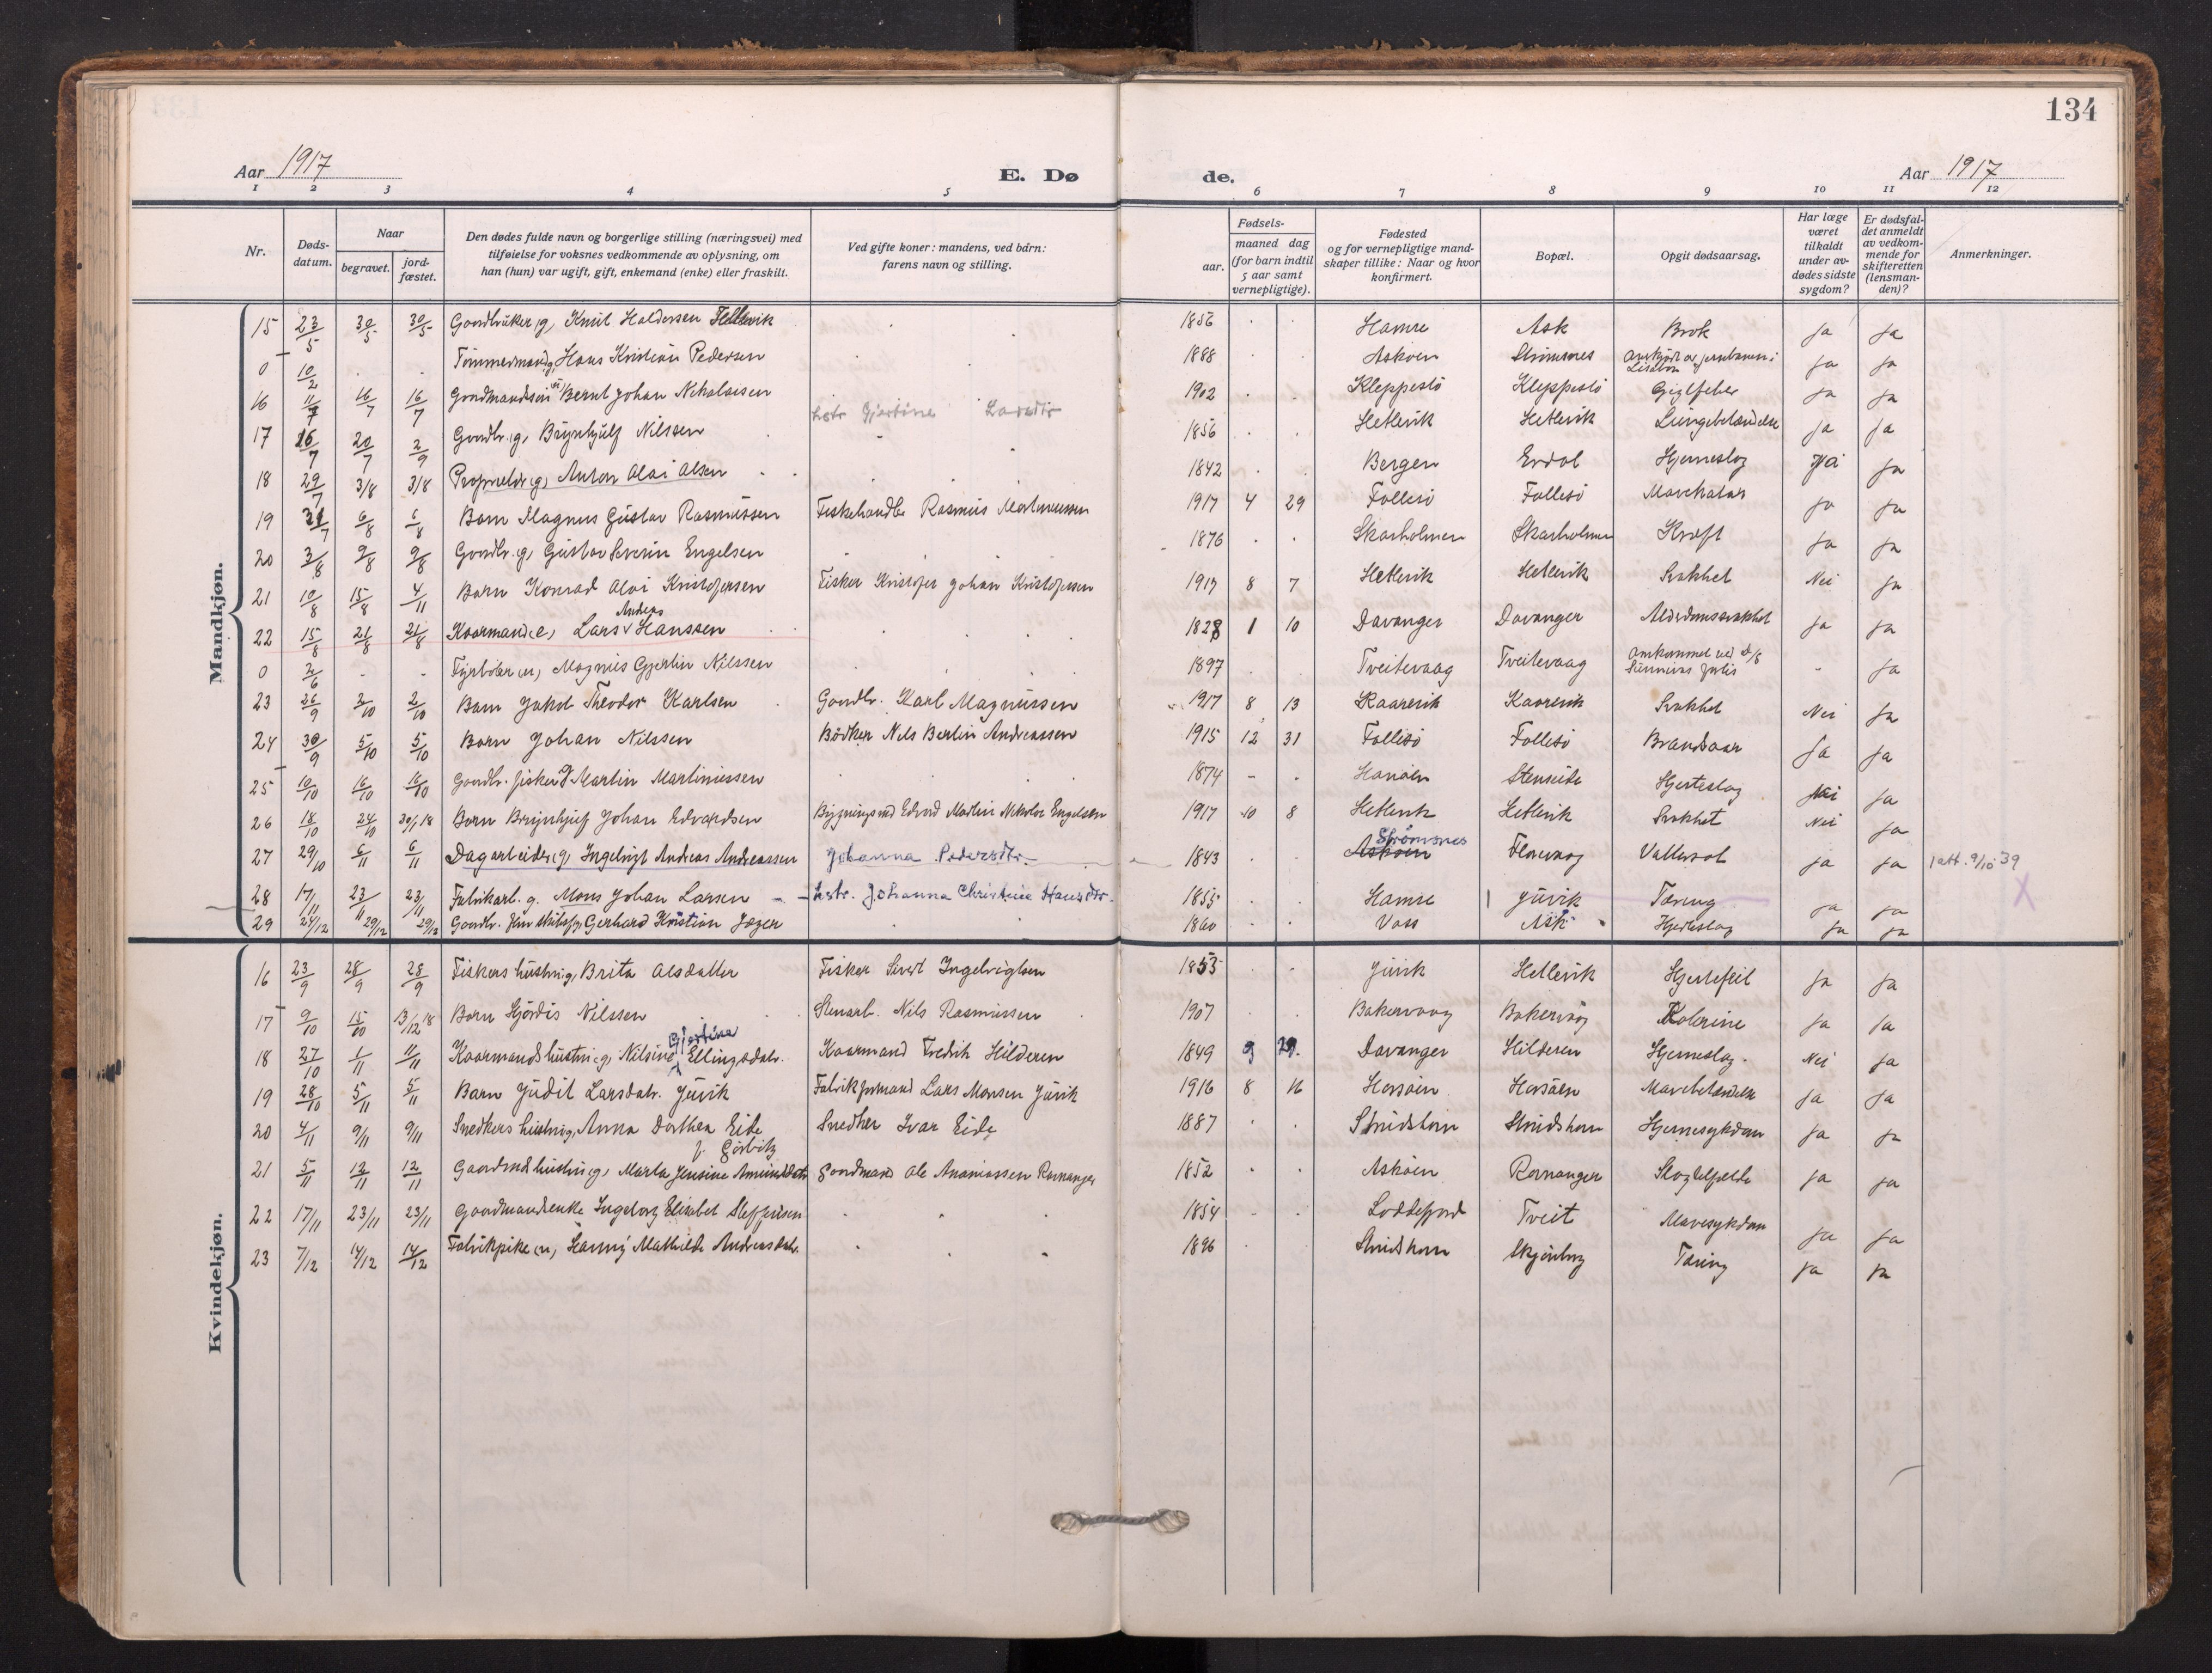 134
Aar 1917 E. Dø de. Aar 1917
1 2 3 4 5 6 7 8 9 10 11 12
Nr. Døds-datum. Naar begravet. jord-fæstet. Den dødes fulde navn og borgerlige stilling (næringsvei) med tilføielse for voksnes vedkommende av oplysning, om han (hun) var ugift, gift, enkemand (enke) eller fraskilt. Ved gifte koner: mandens, ved barn: farens navn og stilling. Fødsels- aar. maaned dag (for barn indtil 5 aar samt vernepligtige). Fødested og for vernepligtige mand-skaper tillike: Naar og hvor konfirmert. Bopæl. Opgit dødsaarsag. Har læge været tilkaldt under av-dødes sidste sygdom? Er dødsfal-det anmeldt av vedkom-mende for skifteretten (lensman-den)? Anmerkninger.
Mandkjøn.
15 23/5 30/5 30/5 Gaardbruker (g) Knut Haldorsen Hetlevik 1856 Hamre Ask Brok Ja Ja
0 10/2 Tømmermand (g) Hans Kristian Pedersen 1888 Askøen Strømsnes Ja Ja
16 11/7 16/7 16/7 Bernt Johan Nikolaisen 1902 Kleppestø Kleppestø Gigtfeber Ja Ja
17 16/7 20/7 2/9 Gaardbr. (g) Brynhjulf Nilssen Hstr Gjertine Larsdtr 1856 Hetlevik Hetlevik Lungebetændelse Ja Ja
18 29/7 3/8 3/8 Anton Olai Olsen 1842 Bergen Erdal Hjerneslag Ja Ja
19 31/7 6/8 6/8 Barn Magnus Gustav Rasmussen Fiskehandler Rasmus Martinussen 1917 4 29 Follesø Follesø Mavekatar Ja Ja
20 3/8 9/8 9/8 Gaardbr. (g) Gustav Severin Engelsen 1876 Skarholmen Skarholmen Kræft Ja Ja
21 10/8 15/8 4/11 Barn Konrad Olai Kristofersen Fisker Kristofer Johan Kristofersen 1917 8 7 Hetlevik Hetlevik Svakhet Nei Ja
22 15/8 21/8 21/8 Kaarmand (e) Lars Andreas Hanssen 1828 1 10 Davanger Davanger Alderdomssvakhet Ja Ja
0 2/6 - - Fyrbøter (u) Magnus Gjertin Nilssen 1897 Tveitevaag Tveitevaag Omkommet ved - Ja
23 26/9 2/10 2/10 Barn Jakob Theodor Karlsen Gaardbr. Karl Magnussen 1917 8 13 Kaarevik Kaarevik Svakhet Nei Ja
24 30/9 5/10 5/10 Barn Johan Nilssen Bødker Nils Bertin Andreassen 1915 12 31 Follesø Follesø Brandsaar Ja Ja
25 10/10 16/10 16/10 Gaardbr. fisker (g) Martin Martinussen 1874 Hanøen Stenseide Hjerteslag Nei Ja
26 18/10 24/10 20/1 18 Barn Brynhjulf Johan Edvardsen Edvard Martin Nikolai Engelsen 1917 10 8 Hetlevik Hetlevik Svakhet Nei Ja
27 29/10 6/11 6/11 Dagarbeider (g) Ingebrigt Andreas Andreassen Johanna Pedersdtr. 1843 Askøen Strømsnes Florvaag Vattersot Ja Ja 1 att. 9/10 39
28 17/11 23/11 23/11 Fabrikarb. g. Mons Johan Larsen Hstr. Johanna Christine Hansdtr. 1855 Hamre Juvik Tæring Ja Ja X
29 24/12 29/12 29/12 Gaardbr. Gerhard Kristian Jæger 1860 Voss Ask Hjerteslag Ja Ja
Kvindekjøn.
16 23/9 28/9 28/9 Fiskers hustru (g) Brita Olsdatter Fisker Sivert Ingebrigtsen 1853 Juvik Hetlevik Hjertefeil Ja Ja
17 9/10 15/10 13/12 18 Barn Hjørdis Nilssen Stenarb. Nils Rasmussen 1907 Bakervaag Bakervaag Kolerine Ja Ja
18 27/10 1/11 11/11 Kaarmands hustru (g) Nilsine Gjertine Ellingsdatr. Kaarmand Fredrik Hilderen 1849 9 29. Davanger Hilderen Hjerneslag. Nei Ja
19 28/10 5/11 5/11 Barn Judit Larsdatr. Juvik Fabrikformand Lars Monsen Juvik 1916 8 16 Horsøen Horsøen Mavebetændelse Ja Ja
20 4/11 9/11 9/11 Snedkers hustru (g) Anna Dorthea Eide f. Görbitz Snedker Ivar Eide 1887 Strudshavn Strudshavn Hjernesykdom Ja Ja
21 5/11 12/11 12/11 Gaardmds hustru (g) Marta Jensine Amundsdatr Gaardmand Ole Ananiassen Ramnanger 1852 Askøen Ramnanger Slagtilfælde Ja Ja
22 17/11 23/11 23/11 Gaardmandsenke Ingeborg Elisabet Steffensen 1854 Loddefjord Tveit Mavesykdom Ja Ja
23 7/12 14/12 14/12 Fabrikpike (u) Hanny Mathilde Andreasdatr. 1896 Strudshavn Skjenborg Tæring Ja Ja